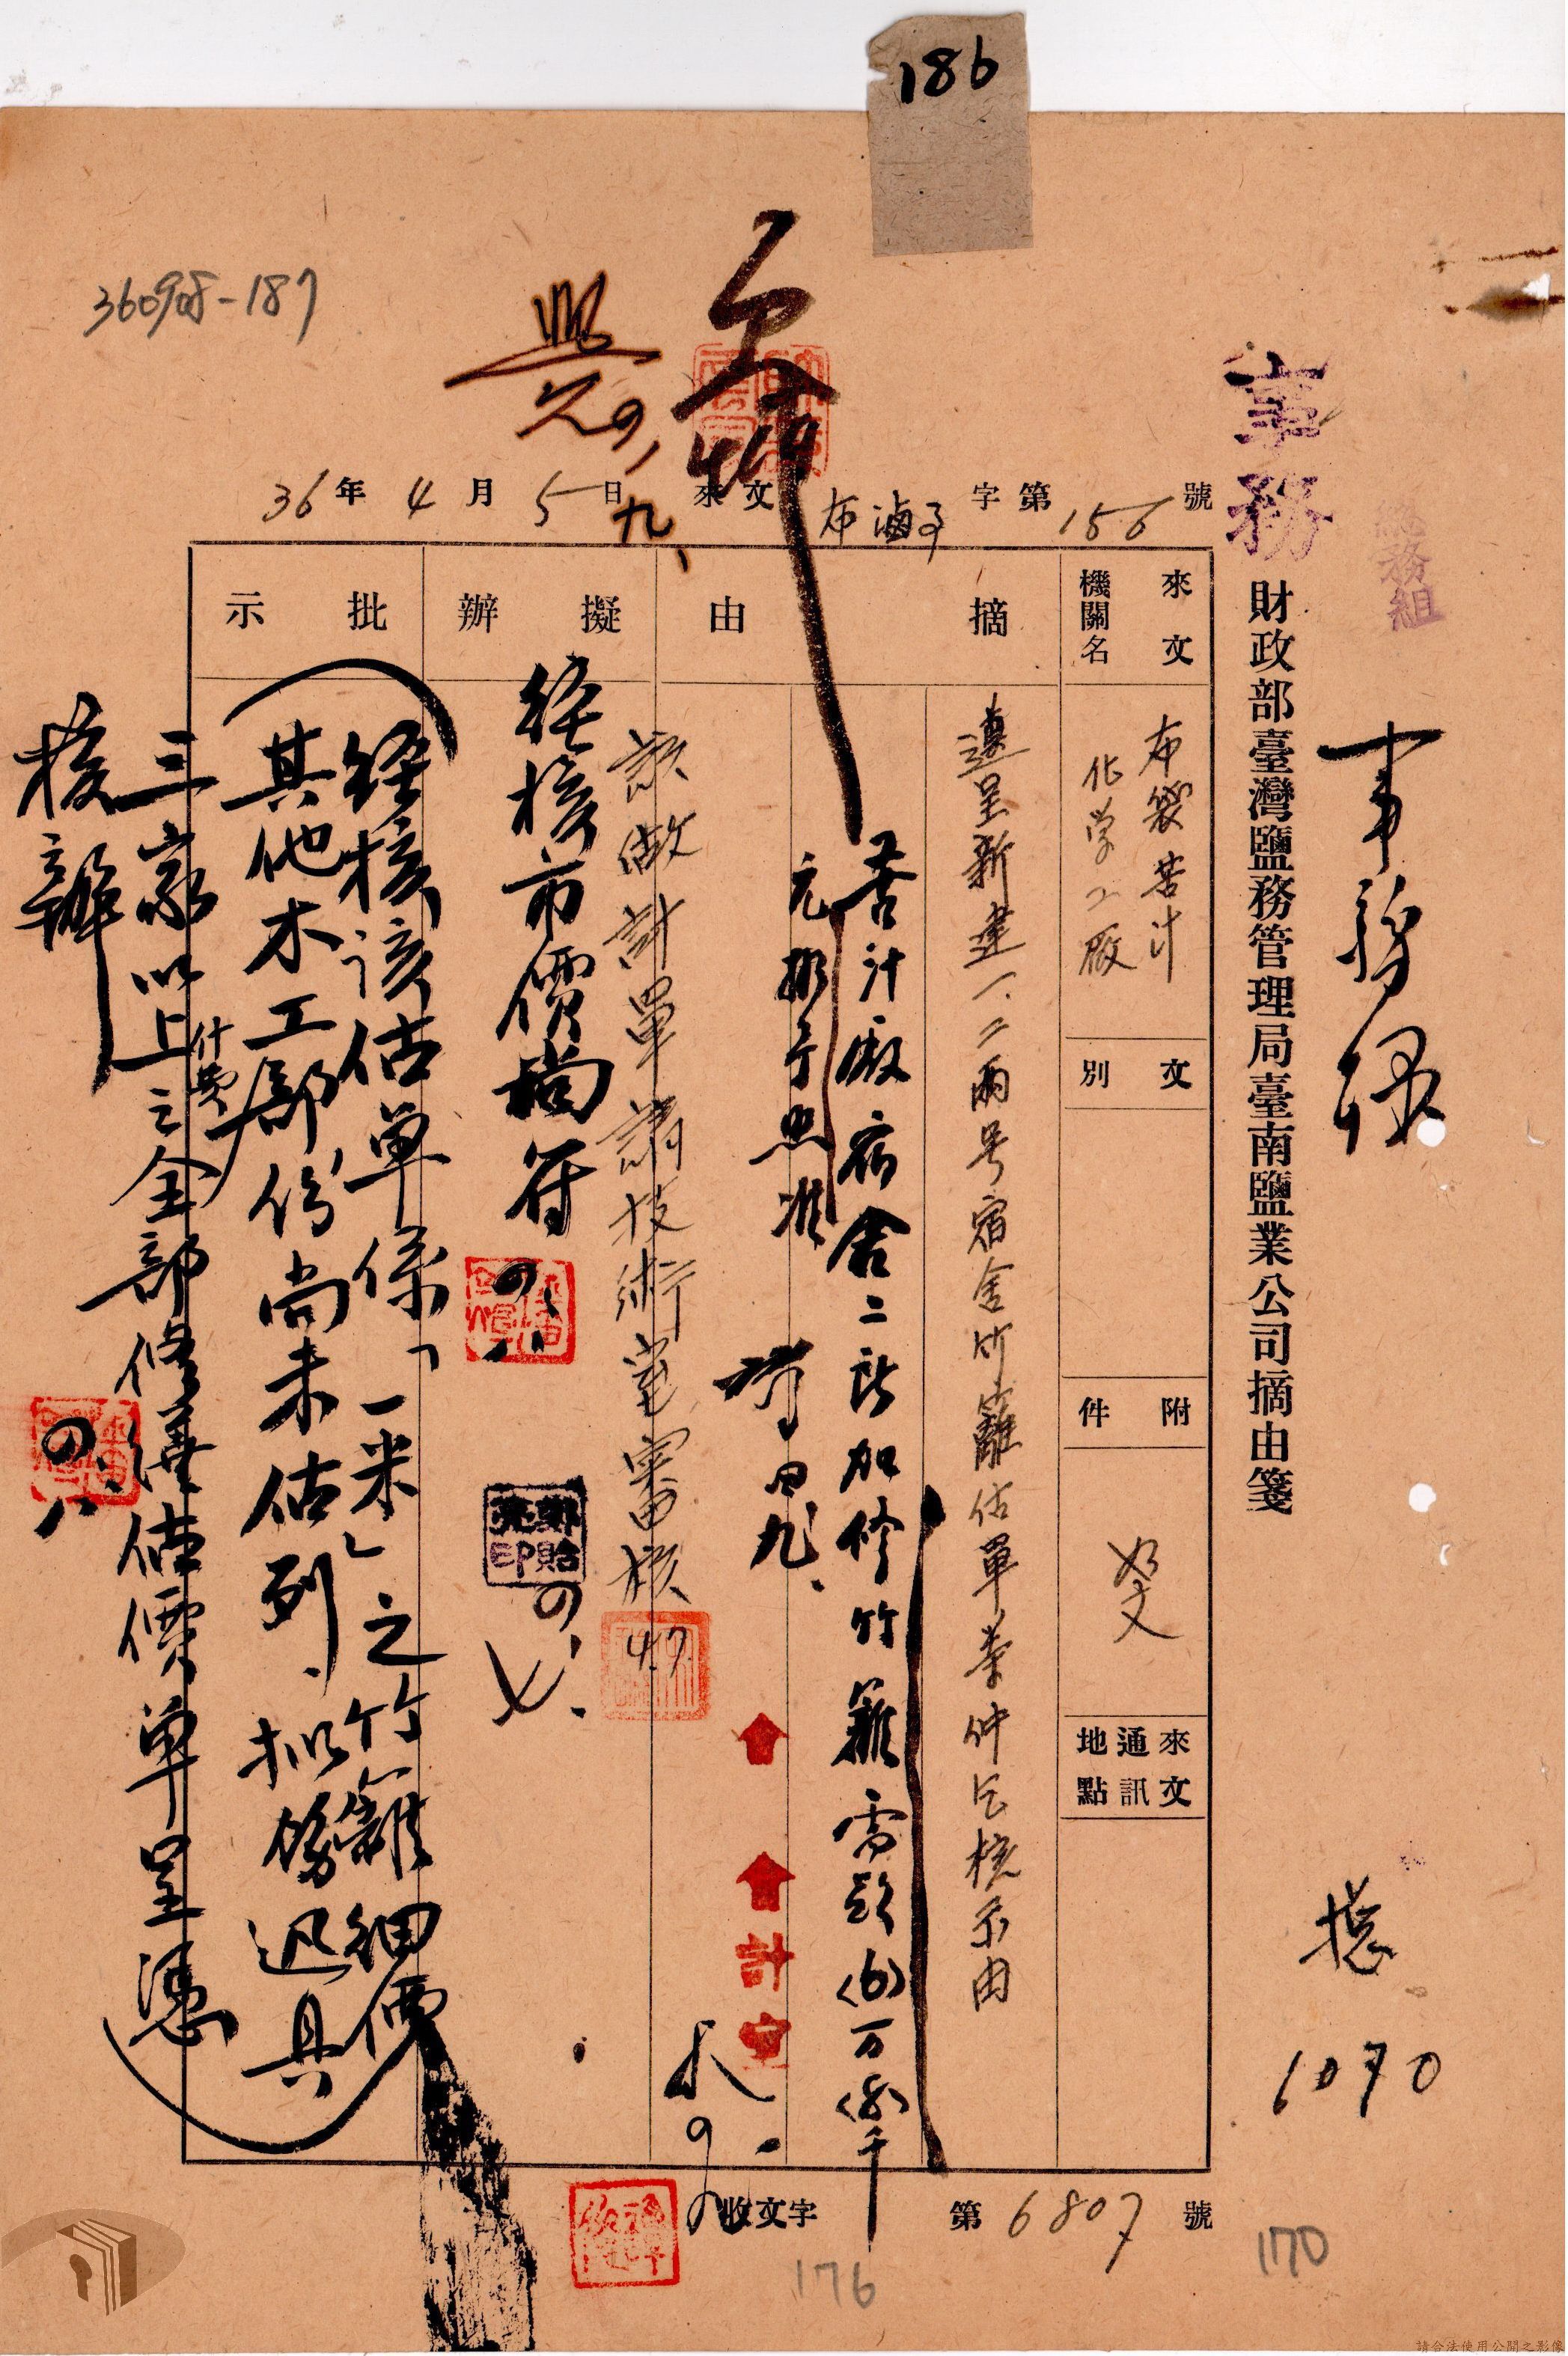 186
36098-187
事務
總務組
財政部臺灣鹽務管理局臺南鹽業公司摘由箋
總
6070
36年4月5日來文布滷子字第156號
來文機關名
布袋苦汁
化学工廠
文別
附件
如文
來文通訊地點
摘由
遵呈新建一、二兩号宿舍竹籬估單叁件乞核示由
苦汁廠宿舍二所加修竹籬需款(6)万(8)千
元擬予照准
四、九、
擬辦
該做計單請技術室審核
4.7.
會
會計室
經核市價尚符
四、八
鄭貽
印
四、七、
批示
經核該估单係「一米」之竹籬細價
其他木工部份尚未估列、拟飭迅具
三家以上之全部修繕估價单呈憑
什費
核辦
四、八
四、九、
收文字第6807號
176
1170
請合法使用公開之影像